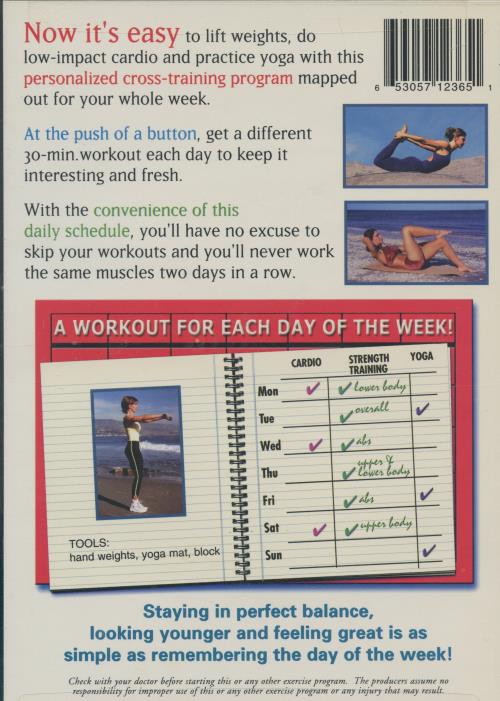 Now it's easy to lift weights, do
low-impact cardio and practice yoga with this
personalized cross-training program mapped
out for your whole week.
6 53057 12365 1
At the push of a button, get a different
30-min.workout each day to keep it
interesting and fresh.
With the convenience of this
daily schedule, you'll have no excuse to
skip your workouts and you'll never work
the same muscles two days in a row.
A WORKOUT FOR EACH DAY OF THE WEEK!
CARDIO STRENGTH TRAINING YOGA
Mon ✓ ✓ lower body
Tue ✓ overall ✓
Wed ✓ ✓ abs
Thu ✓ upper & lower body
Fri ✓ abs ✓
Sat ✓ ✓ upper body
Sun ✓
TOOLS:
hand weights, yoga mat, block
Staying in perfect balance,
looking younger and feeling great is as
simple as remembering the day of the week!
Check with your doctor before starting this or any other exercise program. The producers assume no
responsibility for improper use of this or any other exercise program or any injury that may result.